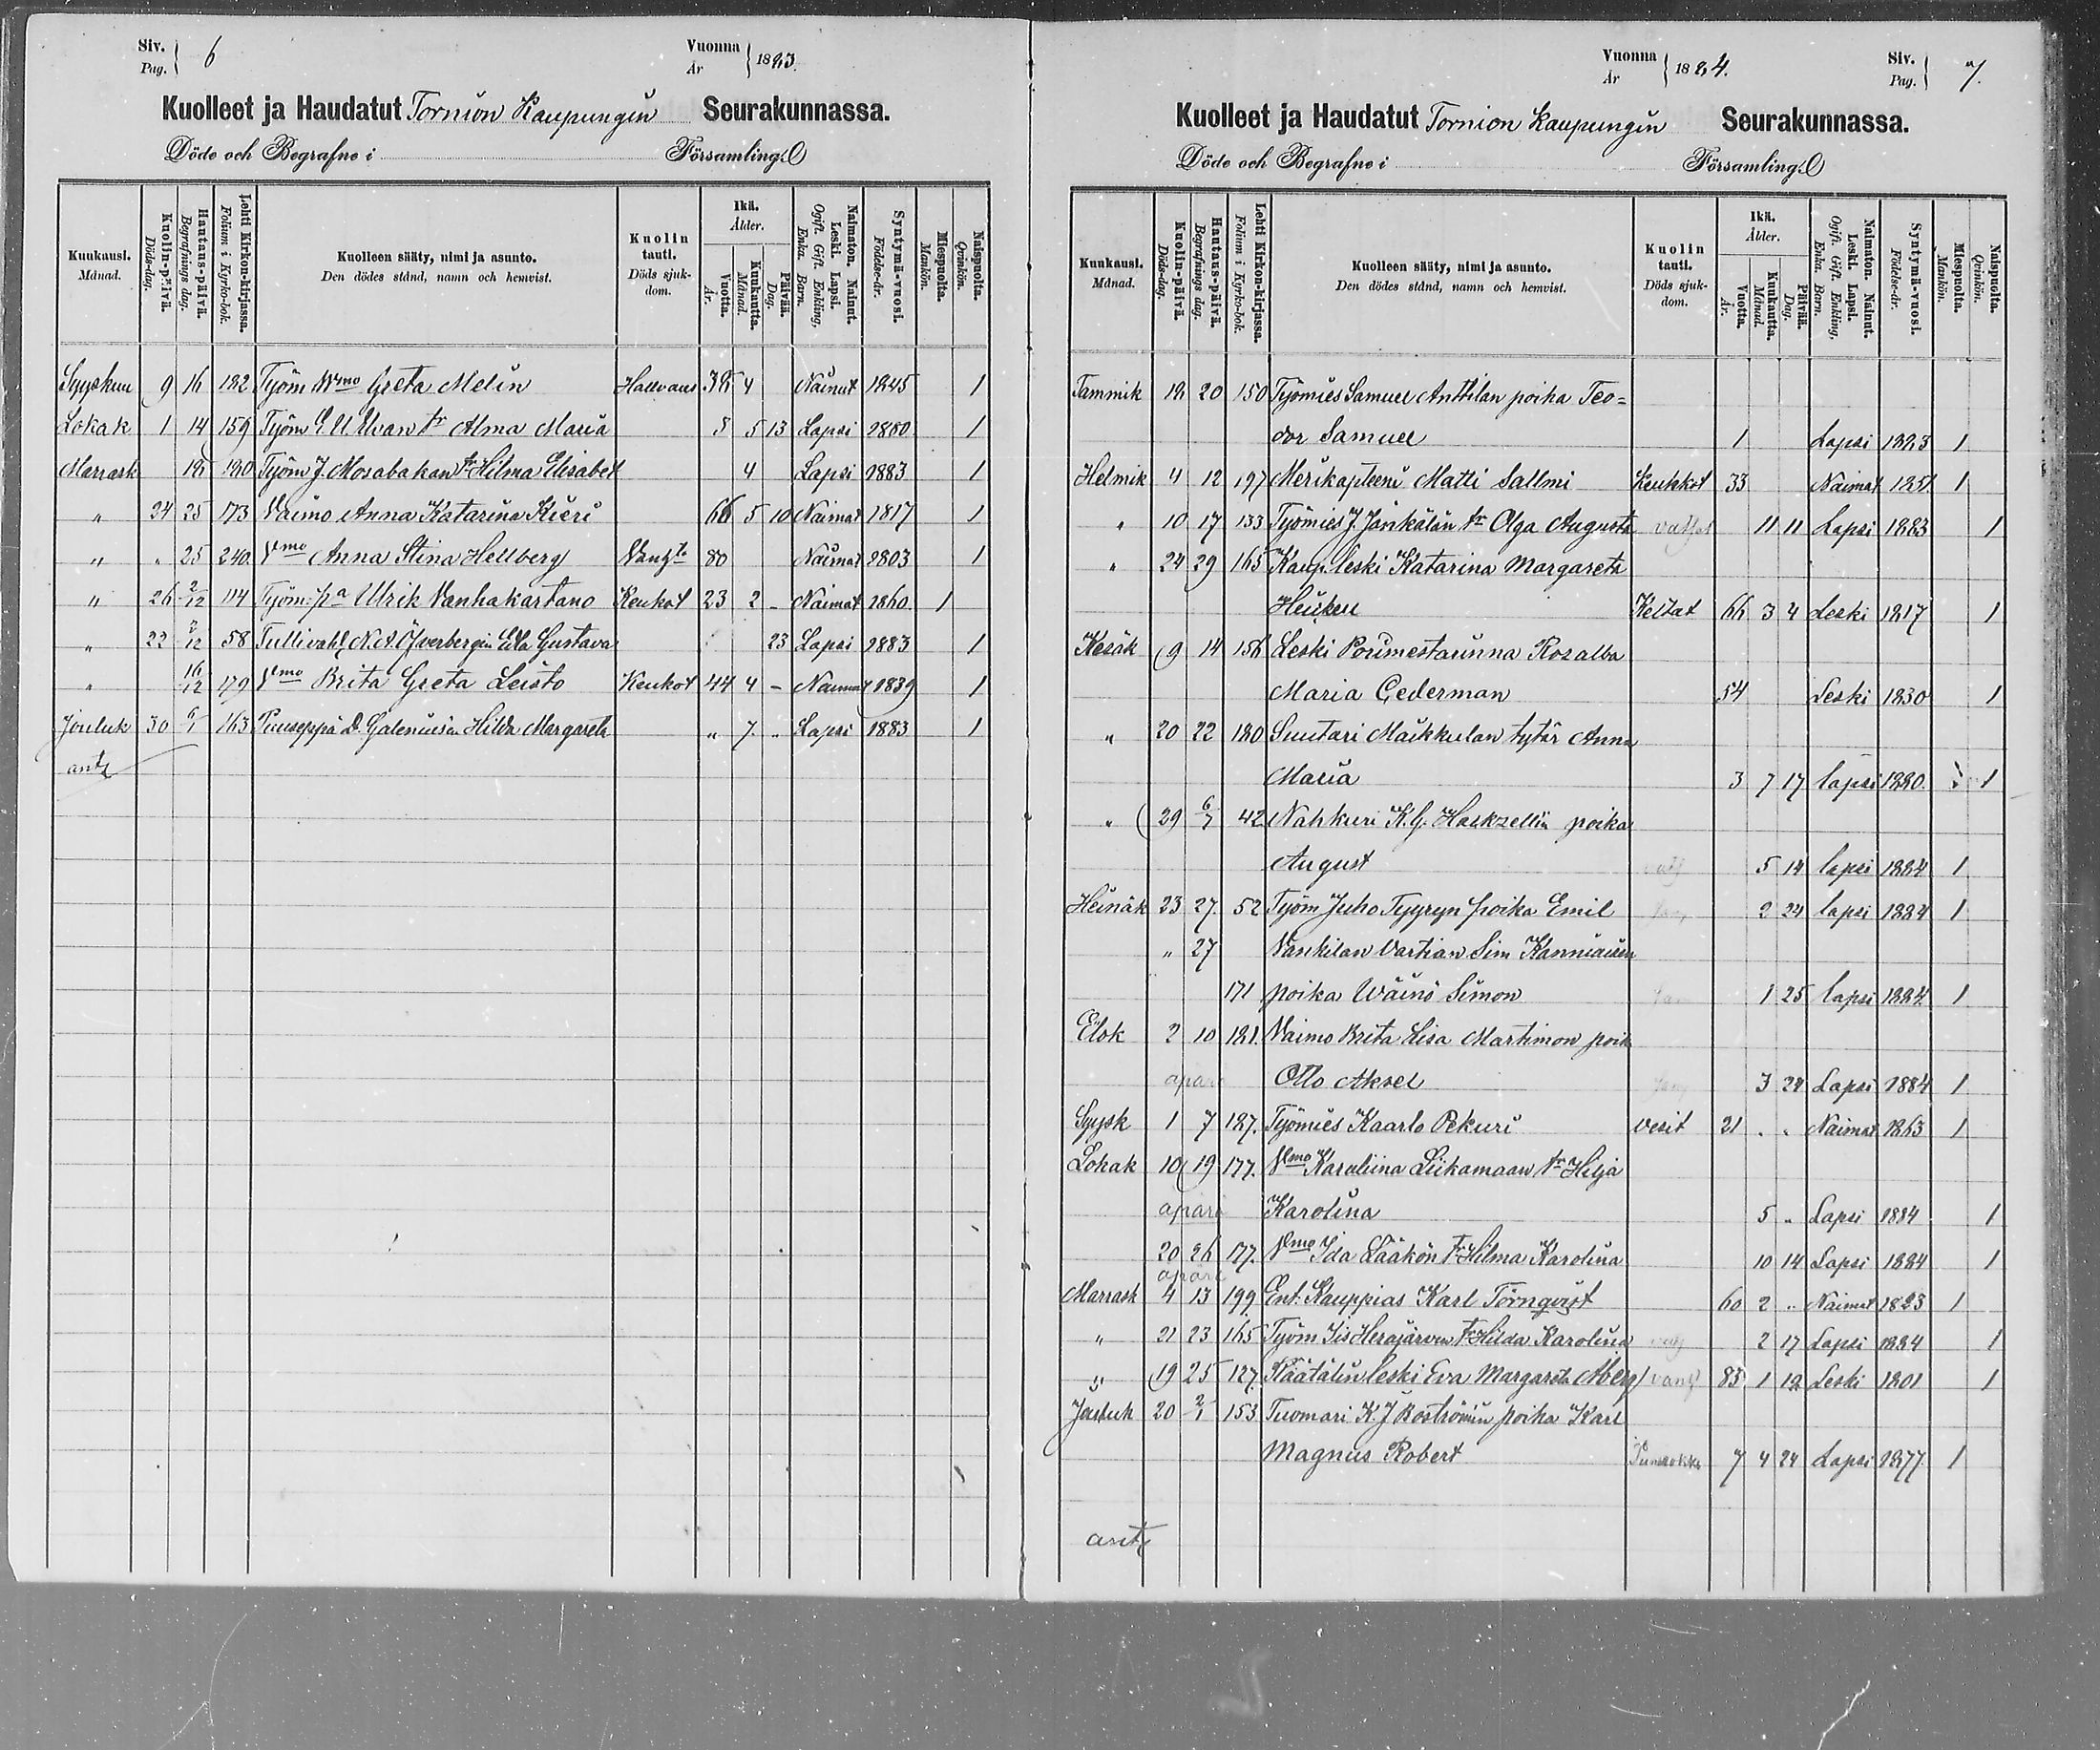 Siv. Pag. 6
Vuonna År 1883.
Kuolleet ja Haudatut Tornion Kaupungin Seurakunnassa.
Döde och Begrafne i Församling.
Kuukausi. Månad.
Kuolin-päivä. Döds-dag.
Hautaus-päivä. Begrafnings dag.
Lehti Kirkon-kirjassa. Folium i Kyrko-bok.
Kuolleen sääty, nimi ja asunto. Den dödes stånd, namn och hemvist.
Kuolin tauti. Döds sjuk-dom.
Ikä. Ålder.
Vuotta. År.
Kuukautta. Månad.
Päivää. Dag.
Naimaton. Nainut. Leski. Lapsi. Ogift. Gift. Enkling, Enka. Barn.
Syntymä-vuosi. Födelse-år.
Miespuolta. Mankön.
Naispuolta. Qvinkön.
Syyskuu 9 16 182 Työm Wmo Greta Melin 38 4 Nainut 1845 1
Lokak 1 14 159 Työm tr Alma Maria 3 5 13 Lapsi 1880 1
Marrask 18 180 Työm J. Mosabakan tr Hilma Elisabet 4 Lapsi 1883 1
" 24 25 173 Vaimo Anna Katarina Kieri 66 5 10 Naimat 1817 1
" " 25 240. Vmo Anna Stina Hellberg 80 Naimat 1803 1
" 26 2/12 114 Työm: pa Ulrik Vanhakartano Keukot 23 2 - Naimat 1860. 1
" 22 2/12 58 Tullivaht N. A. Öfverbergin Gustava 23 Lapsi 1883 1
" 16/12 179 Vmo Brita Greta Leisto Keukot 44 4 - Naimat 1839 1
Jouluk 30 6/1 163 Puuseppä D. Galeniusin Hilda Margareta " 7 " Lapsi 1883 1
Vuonna År 1884.
Siv. Pag. 7.
Kuolleet ja Haudatut Tornion Kaupungin Seurakunnassa.
Döde och Begrafne i Församling.
Kuukausi. Månad.
Kuolin-päivä. Döds-dag.
Hautaus-päivä. Begrafnings dag.
Lehti Kirkon-kirjassa. Folium i Kyrko-bok.
Kuolleen sääty, nimi ja asunto. Den dödes stånd, namn och hemvist.
Kuolin tauti. Döds sjuk-dom.
Ikä. Ålder.
Vuotta. År.
Kuukautta. Månad.
Päivää. Dag.
Naimaton. Nainut. Leski. Lapsi. Ogift. Gift. Enkling, Enka. Barn.
Syntymä-vuosi. Födelse-år.
Miespuolta. Mankön.
Naispuolta. Qvinkön.
Tammik 18 20 150 Työmies Samuel Anttilan poika Teo=
dor Samuel 1 Lapsi 1883 1
Helmik 4 12 197 Merikapteeni Matti Sallmi Keuhkot 33 Naimat 1851 1
" 10 17 133 Työmies J. Jänkälän tr Olga Augusta 11 11 Lapsi 1883 1
" 24 29 165 Kaup. leski Katarina Margareta
66 3 4 Leski 1817 1
Kesäk 9 14 156 Leski Porimestarinna Rosalba
Maria Cederman 54 Leski 1830 1
" 20 22 180 Suutari Maikkulan tytär Anna
Maria 3 7 17 lapsi 1880. 1
" 29 6/7 42 Nahkuri K. G. poika
August 5 14 lapsi 1884 1
Heinäk 23 27. 52 Työm Juho Tyyryn poika Emil 2 24 lapsi 1884 1
" 27 Vankilan Vartian Sim Kanniaisen
171 poika Wäinö Simon 1 25 lapsi 1884 1
Elok 2 10 181. Vaimo Brita Lisa Martimon poik
apara Otto Aksel 3 24 Lapsi 1884 1
Syysk 1 7 187. Työmies Kaarlo Pekuri vesit 21 " " Naimat 1863 1
Lokak 10 19 177. Vmo Karoliina Liikamaan tr Hilja
apara Karolina 5 " Lapsi 1884 1
20 26 177. Vmo Ida Lääkön tr Hilma Karolina 10 14 Lapsi 1884 1
apara
Marrask 4 13 199 Ent. Kauppias Karl Törnqvist 60 2 " Naimat 1823 1
" 21 23 165 Työm Iis Herajärven tr Hilda Karolina 2 17 Lapsi 1884 1
" 19 25 127. Räätälin leski Eva Margareta Åberg 83 1 19 Leski 1801 1
Jouluk 20 2/1 153 Tuomari K. J. Boströmin poika Karl
Magnus Robert 7 4 24 Lapsi 1877 1